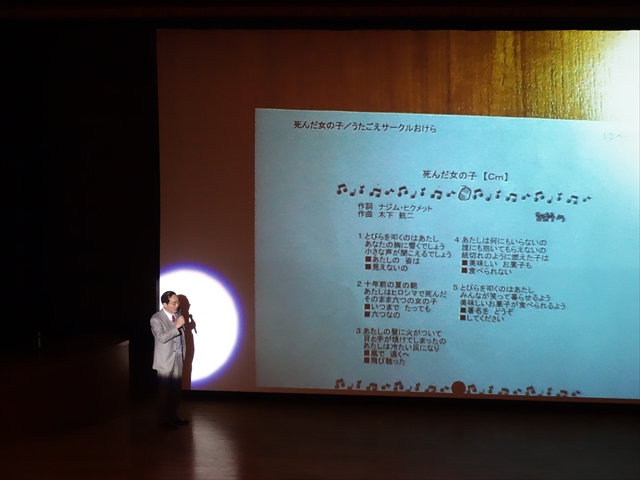 死んだ女の子／うたごえサークルおけら
死んだ女の子【Cm】
作詞 ナジム・ヒクメット
作曲 木下 航二
1 とびらを叩くのはあたし
あなたの胸に響くでしょう
小さな声が聞こえるでしょう
■あたしの 姿は
■見えないの
2 十年前の夏の朝
あたしはヒロシマで死んだ
そのまま六つの女の子
■いつまで たっても
■六つなの
3 あたしの髪に火がついて
目と手が焼けてしまったの
あたしは冷たい灰になり
■風で 遠くへ
■飛び散った
4 あたしは何にもいらないの
誰にも抱いてもらえないの
紙切れのように燃えた子は
■美味しい お菓子も
■食べられない
5 とびらを叩くのはあたし
みんなが笑って暮らせるよう
美味しいお菓子が食べられるよう
■署名を どうぞ
■してください